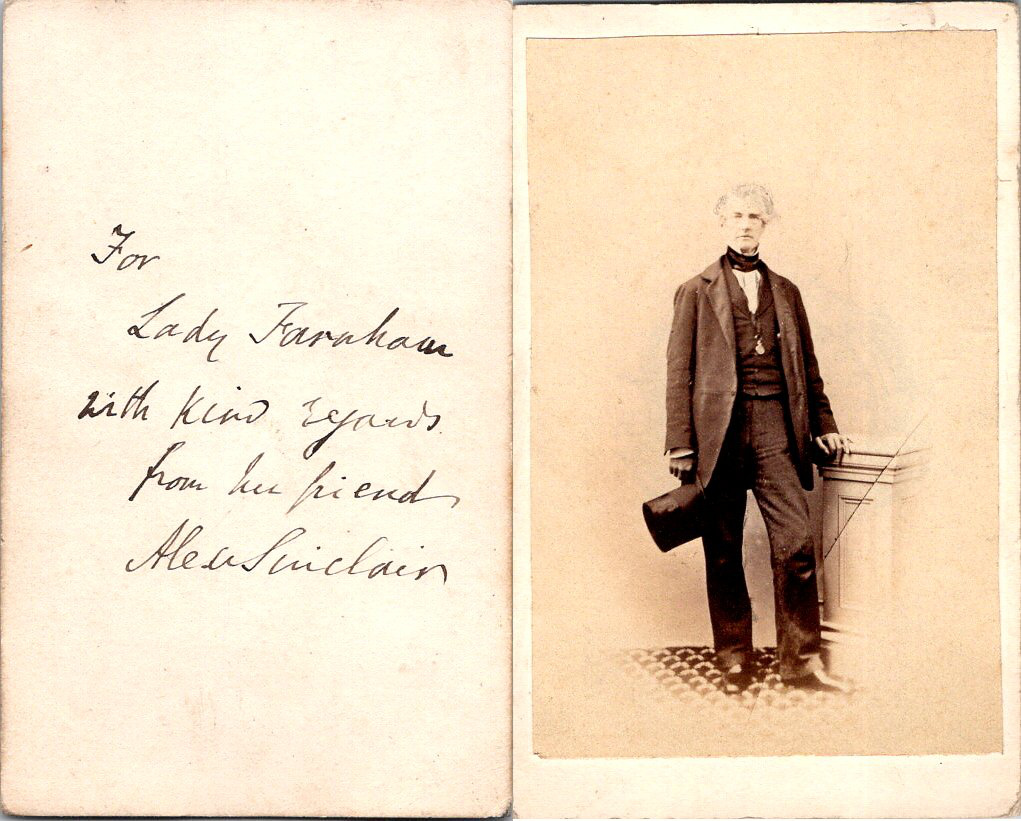 For
Lady Farnham
with kind regards
from her friend
Alex Sinclair